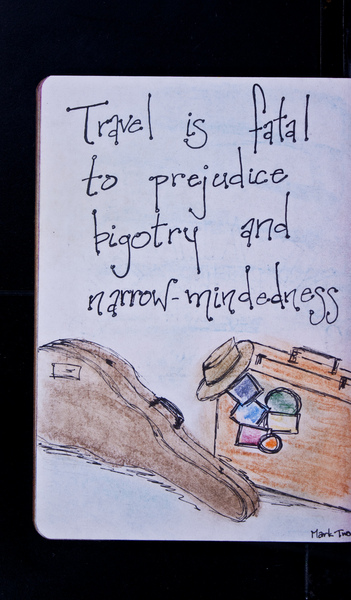 Travel is fatal
to prejudice
bigotry and
narrow-mindedness
Mark